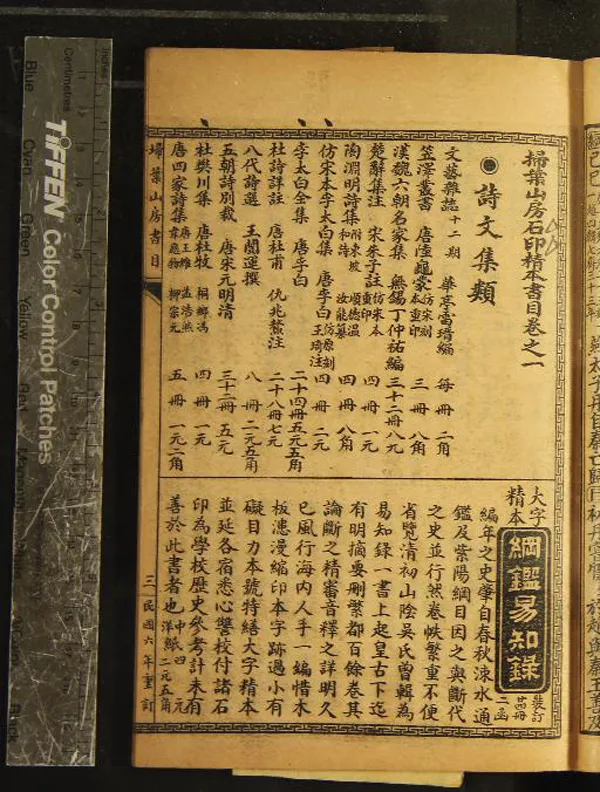 掃葉山房石印精本書目卷之一
●詩文集類
文藝雜誌 十二期 華亭雷瑨編 每冊 二角
笠澤叢書 唐陸龜蒙 仿宋刻本重印 三冊 八角
漢魏六朝名家集 無錫丁仲祐編 三十二冊 八元
楚辭集注 宋朱子註 仿宋本重印 四冊 一元
陶淵明詩集 附東坡和詩 順德溫汝能纂 四冊 八角
仿宋本李太白集 唐李白 仿原刻王琦注 四冊 二元
李太白全集 唐李白 二十四冊 五元五角
杜詩詳註 唐杜甫 仇兆鰲注 二十八冊 七元
八代詩選 王闓運撰 八冊 二元五角
五朝詩別裁 唐宋元明清 三十二冊 五元
杜樊川集 唐杜牧 桐鄉馮 四冊 一元
唐四家詩集 唐王維 孟浩然 韋應物 柳宗元 五冊 一元二角
大字精本 綱鑑易知錄 裝訂 廿四冊 二函
編年之史肇自春秋涑水通
鑑及紫陽綱目因之與斷代
之史並行然卷帙繁重不便
省覽清初山陰吳氏曾輯為
易知錄一書上起皇古下迄
有明摘要刪繁都百餘卷其
論斷之精審音釋之詳明久
已風行海內人手一編惜木
板漶漫縮印本字跡過小有
礙目力本號特繕大字精本
並延各宿悉心讐校付諸石
印為學校歷史參考計未有
善於此書者也 中四元 洋紙二元五角
掃葉山房書目
三 民國六年重訂
TIFFEN Color Control Patches
Centimetres
Inches
Blue
Cyan
Green
Yellow
Red
Magenta
Black